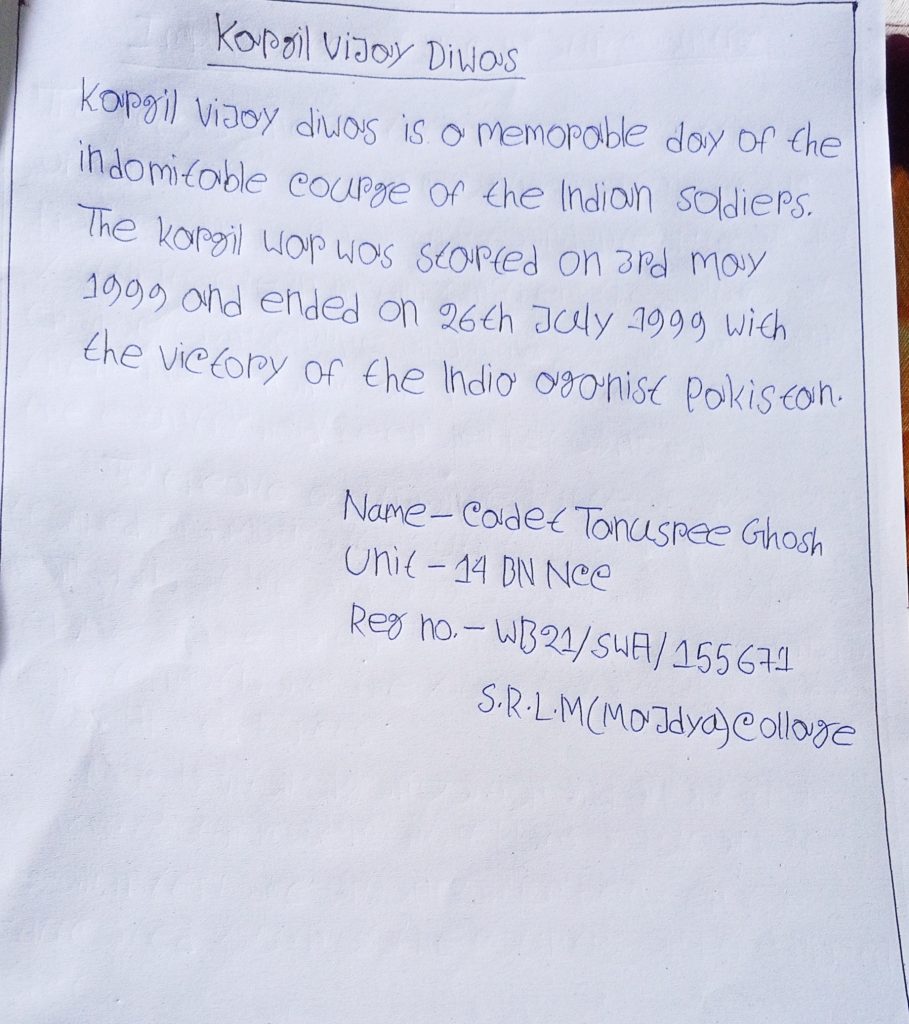 Kargil Vijay Diwas
Kargil Vijay diwas is a memorable day of the
indomitable courge of the Indian soldiers.
The kargil war was started on 3rd may
1999 and ended on 26th July 1999 with
the victory of the India aganist Pakistan.
Name - Cadet Tanusree Ghosh
Unit - 14 BN Ncc
Reg no. - WB21/SWA/155671
S.R.L.M(Majdya)Collage